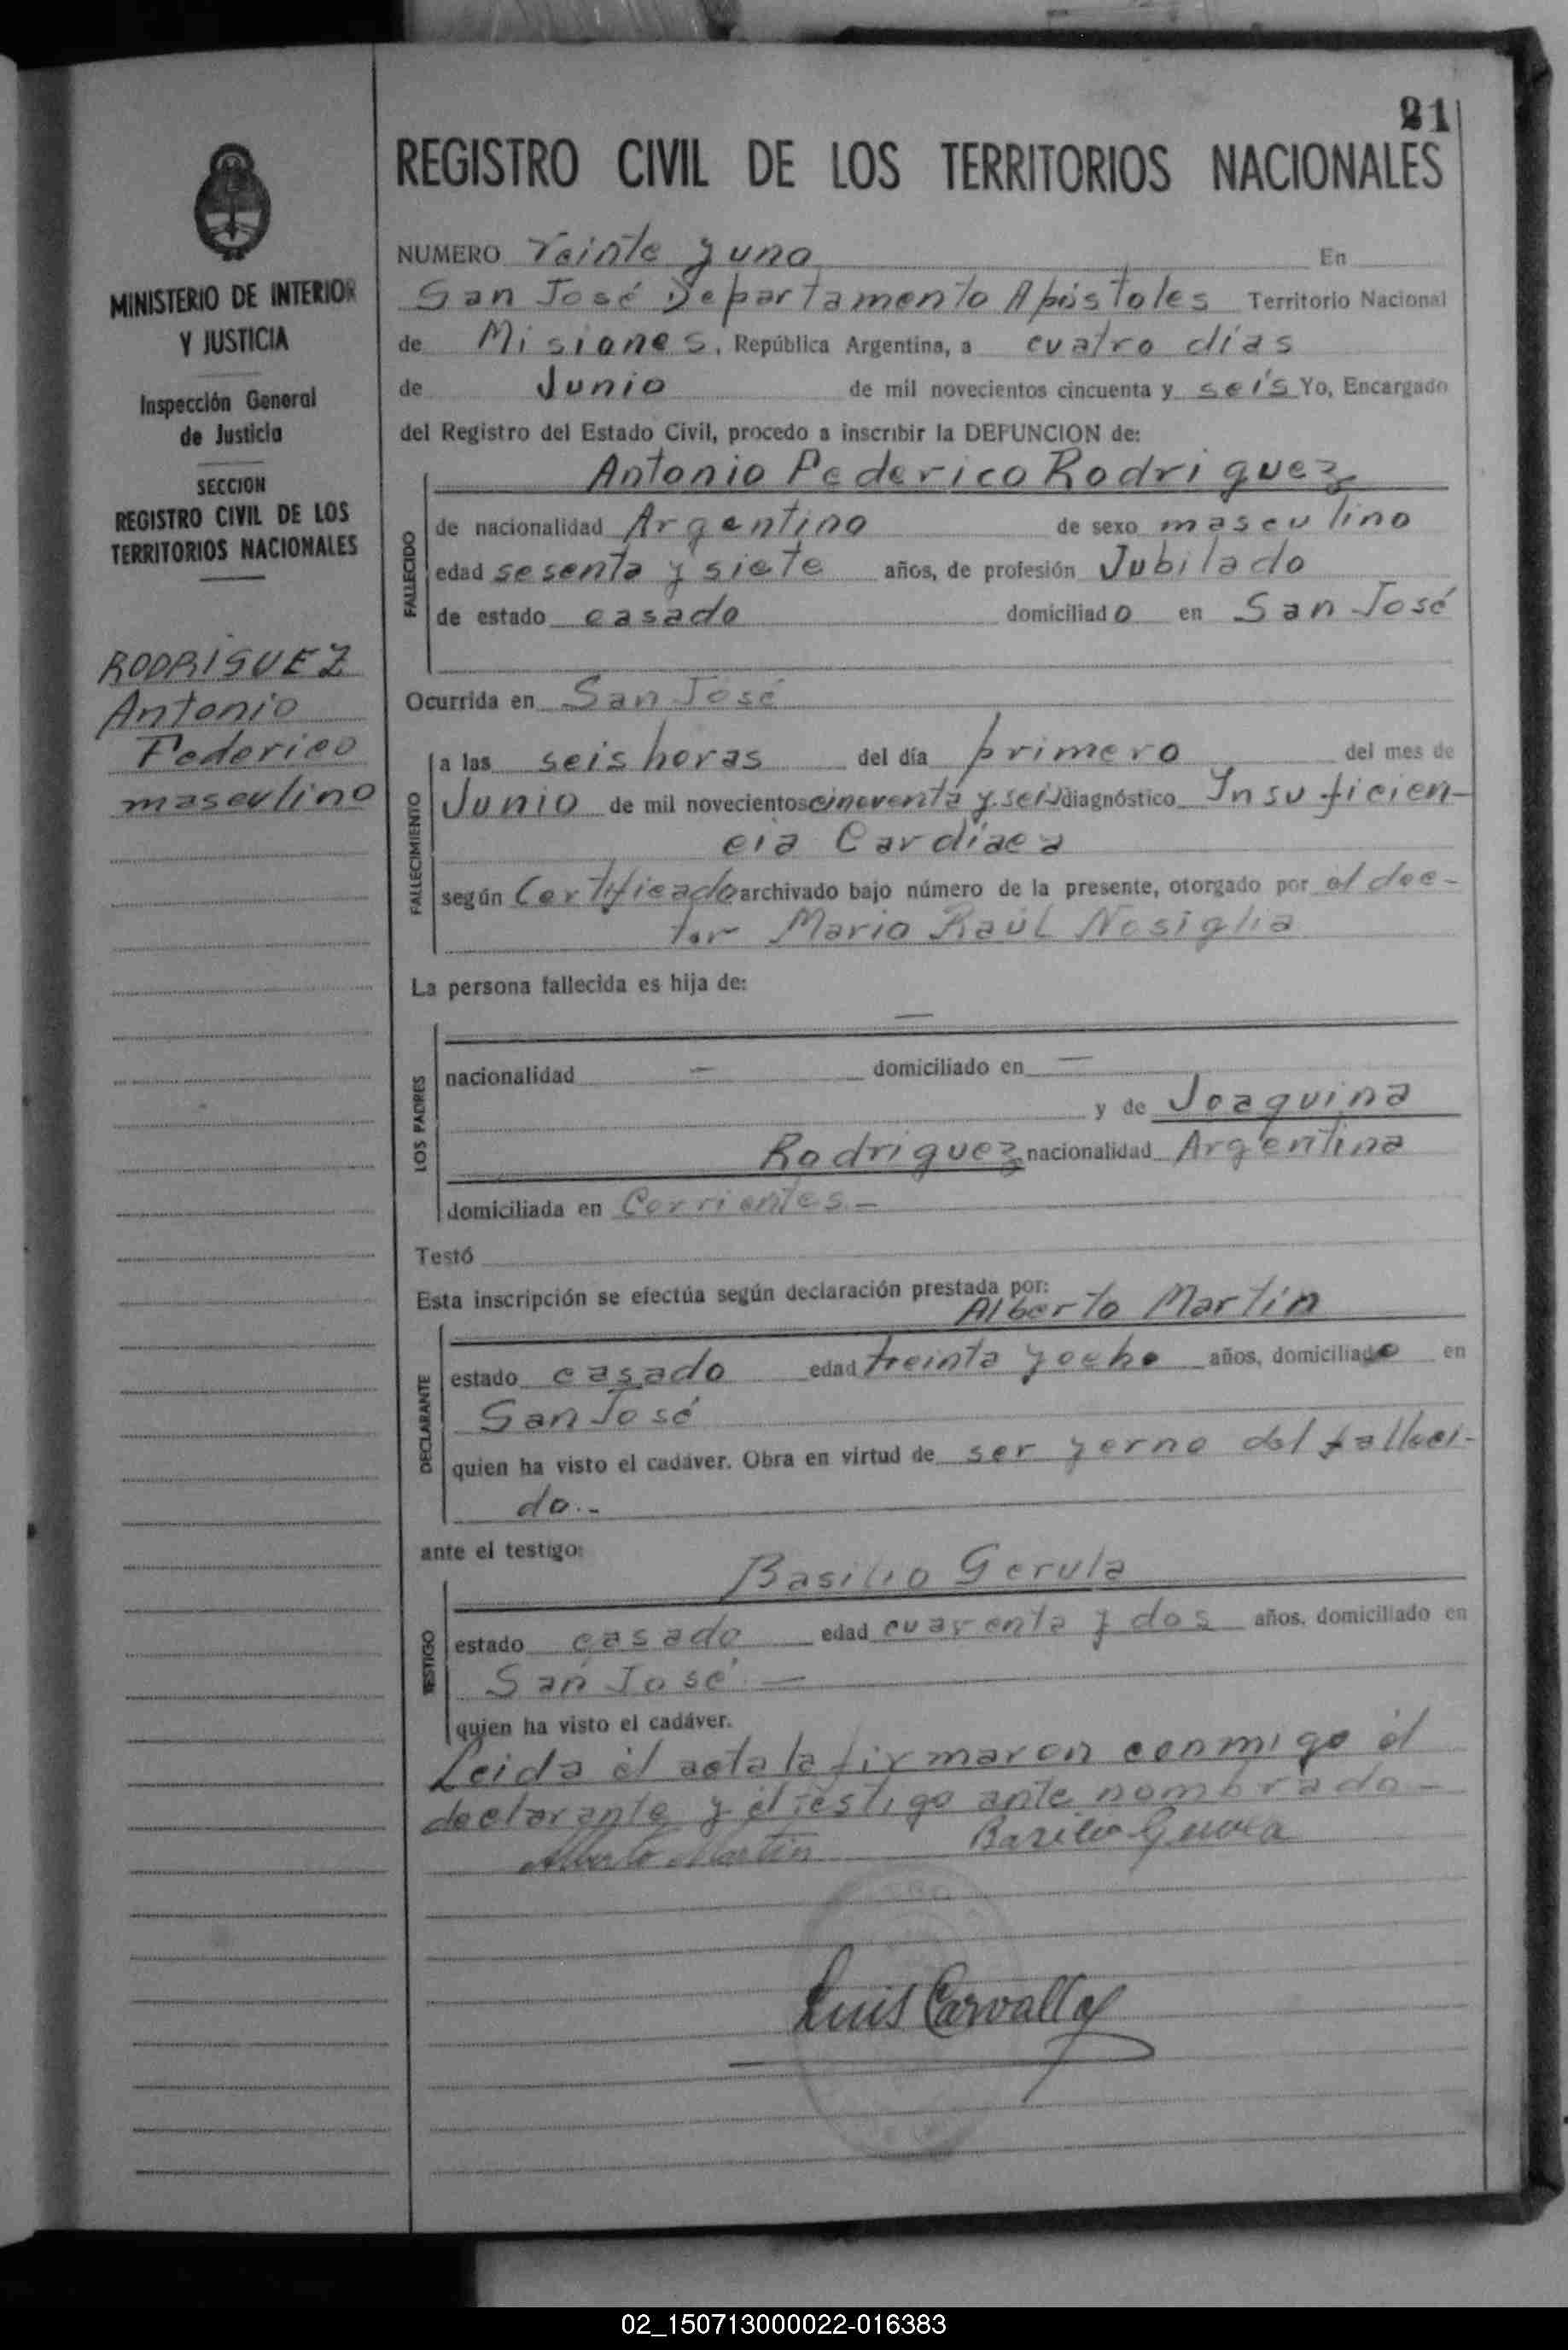 21
REGISTRO CIVIL DE LOS TERRITORIOS NACIONALES
MINISTERIO DE INTERIOR
Y JUSTICIA
Inspección General
de Justicia
SECCION
REGISTRO CIVIL DE LOS
TERRITORIOS NACIONALES
RODRIGUEZ
Antonio
Federico
masculino
NUMERO Veinte y uno En
San José Departamento Apóstoles Territorio Nacional
de Misiones, República Argentina, a cuatro días
de Junio de mil novecientos cincuenta y seis Yo, Encargado
del Registro del Estado Civil, procedo a inscribir la DEFUNCION de:
Antonio Federico Rodriguez
FALLECIDO
de nacionalidad Argentino de sexo masculino
edad sesenta y siete años, de profesión Jubilado
de estado casado domiciliado en San José
Ocurrida en San José
FALLECIMIENTO
a las seis horas del día primero del mes de
Junio de mil novecientos cincuenta y seis diagnóstico Insuficien-
cia Cardíaca
según Certificado archivado bajo número de la presente, otorgado por el doc-
tor Mario Raúl Nosiglia
La persona fallecida es hija de:
—
LOS PADRES
nacionalidad — domiciliado en —
y de Joaquina
Rodriguez nacionalidad Argentina
domiciliada en Corrientes.—
Testó
Esta inscripción se efectúa según declaración prestada por:
Alberto Martín
DECLARANTE
estado casado edad treinta y ocho años, domiciliado en
San José
quien ha visto el cadáver. Obra en virtud de ser yerno del falleci-
do.-
ante el testigo:
Basilio Gerula
TESTIGO
estado casado edad cuarenta y dos años, domiciliado en
San José —
quien ha visto el cadáver.
Leida él acta la firmaron conmigo él
declarante y él testigo ante nombrado-
Alberto Martin Basilio Gerula
Luis Carvallo
02_150713000022-016383